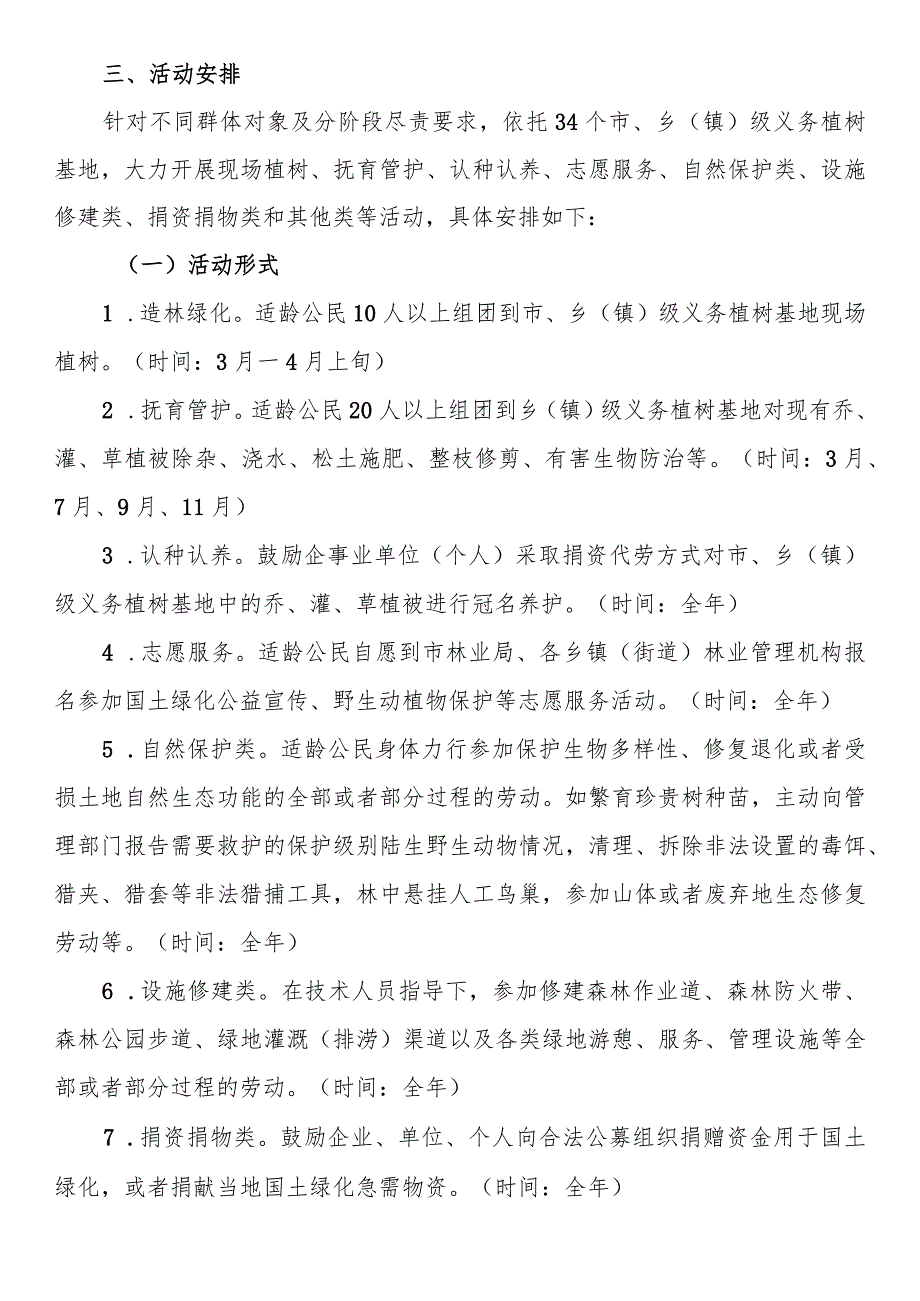 三、活动安排
针对不同群体对象及分阶段尽责要求，依托34个市、乡（镇）级义务植树
基地，大力开展现场植树、抚育管护、认种认养、志愿服务、自然保护类、设施
修建类、捐资捐物类和其他类等活动，具体安排如下：
（一）活动形式
1 .造林绿化。适龄公民10人以上组团到市、乡（镇）级义务植树基地现场
植树。（时间：3月一4月上旬）
2 .抚育管护。适龄公民20人以上组团到乡（镇）级义务植树基地对现有乔、
灌、草植被除杂、浇水、松土施肥、整枝修剪、有害生物防治等。（时间：3月、
7月、9月、11月）
3 .认种认养。鼓励企事业单位（个人）采取捐资代劳方式对市、乡（镇）
级义务植树基地中的乔、灌、草植被进行冠名养护。（时间：全年）
4 .志愿服务。适龄公民自愿到市林业局、各乡镇（街道）林业管理机构报
名参加国土绿化公益宣传、野生动植物保护等志愿服务活动。（时间：全年）
5 .自然保护类。适龄公民身体力行参加保护生物多样性、修复退化或者受
损土地自然生态功能的全部或者部分过程的劳动。如繁育珍贵树种苗，主动向管
理部门报告需要救护的保护级别陆生野生动物情况，清理、拆除非法设置的毒饵、
猎夹、猎套等非法猎捕工具，林中悬挂人工鸟巢，参加山体或者废弃地生态修复
劳动等。（时间：全年）
6 .设施修建类。在技术人员指导下，参加修建森林作业道、森林防火带、
森林公园步道、绿地灌溉（排涝）渠道以及各类绿地游憩、服务、管理设施等全
部或者部分过程的劳动。（时间：全年）
7 .捐资捐物类。鼓励企业、单位、个人向合法公募组织捐赠资金用于国土
绿化，或者捐献当地国土绿化急需物资。（时间：全年）